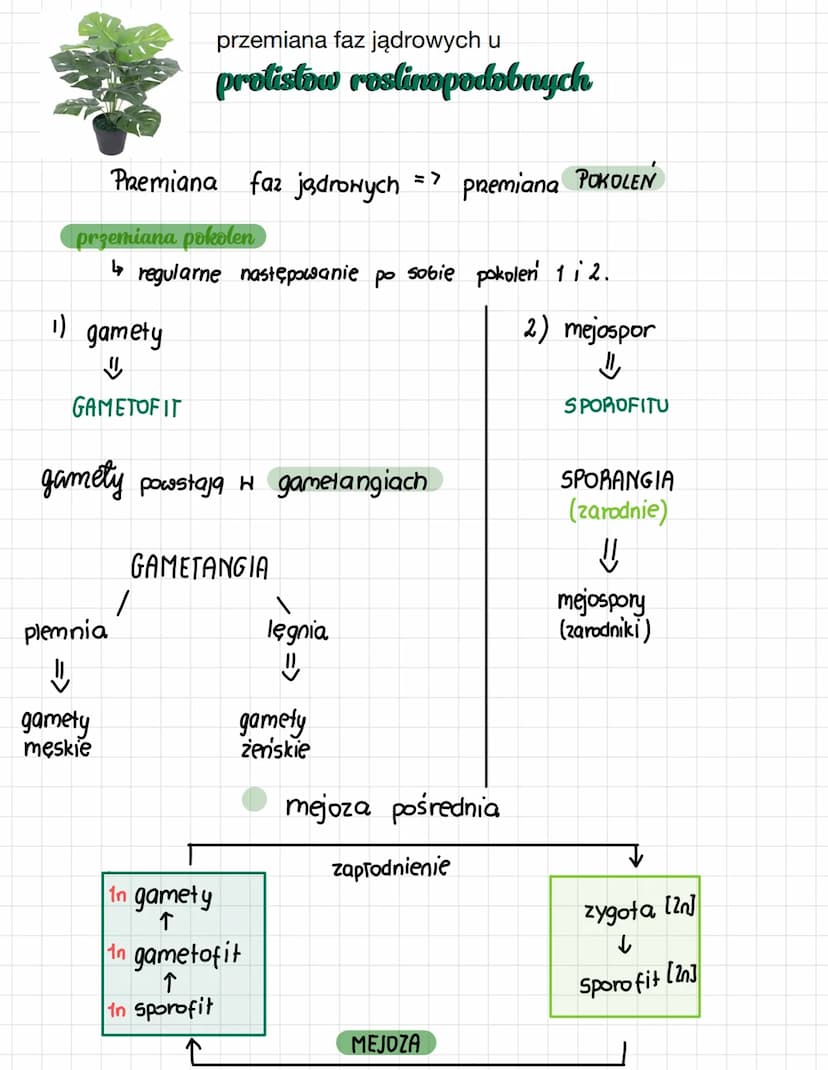 przemiana faz jądrowych u
protistow roslinopodobnych
Przemiana faz jądrowych => przemiana POKOLEŃ
przemiana pokolen
↳ regularne następowanie po sobie pokoleń 1 i 2.
1) gamety
⇓
GAMETOFIT
gamety powstają w gametangiach
GAMETANGIA
/ \
plemnia lęgnia
⇓ ⇓
gamety męskie
gamety żeńskie
2) mejospor
⇓
SPOROFITU
SPORANGIA
(zarodnie)
⇓
mejospory
(zarodniki)
mejoza pośrednia
zapłodnienie
1n gamety
↑
1n gametofit
↑
1n sporofit
zygota [2n]
↓
sporofit [2n]
MEJOZA